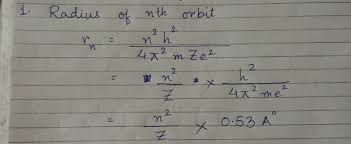 1. Radius of nth orbit
rₙ = n²h² / 4π² m Ze²
= n² / Z × h² / 4π² me²
= n² / Z × 0.53 A°